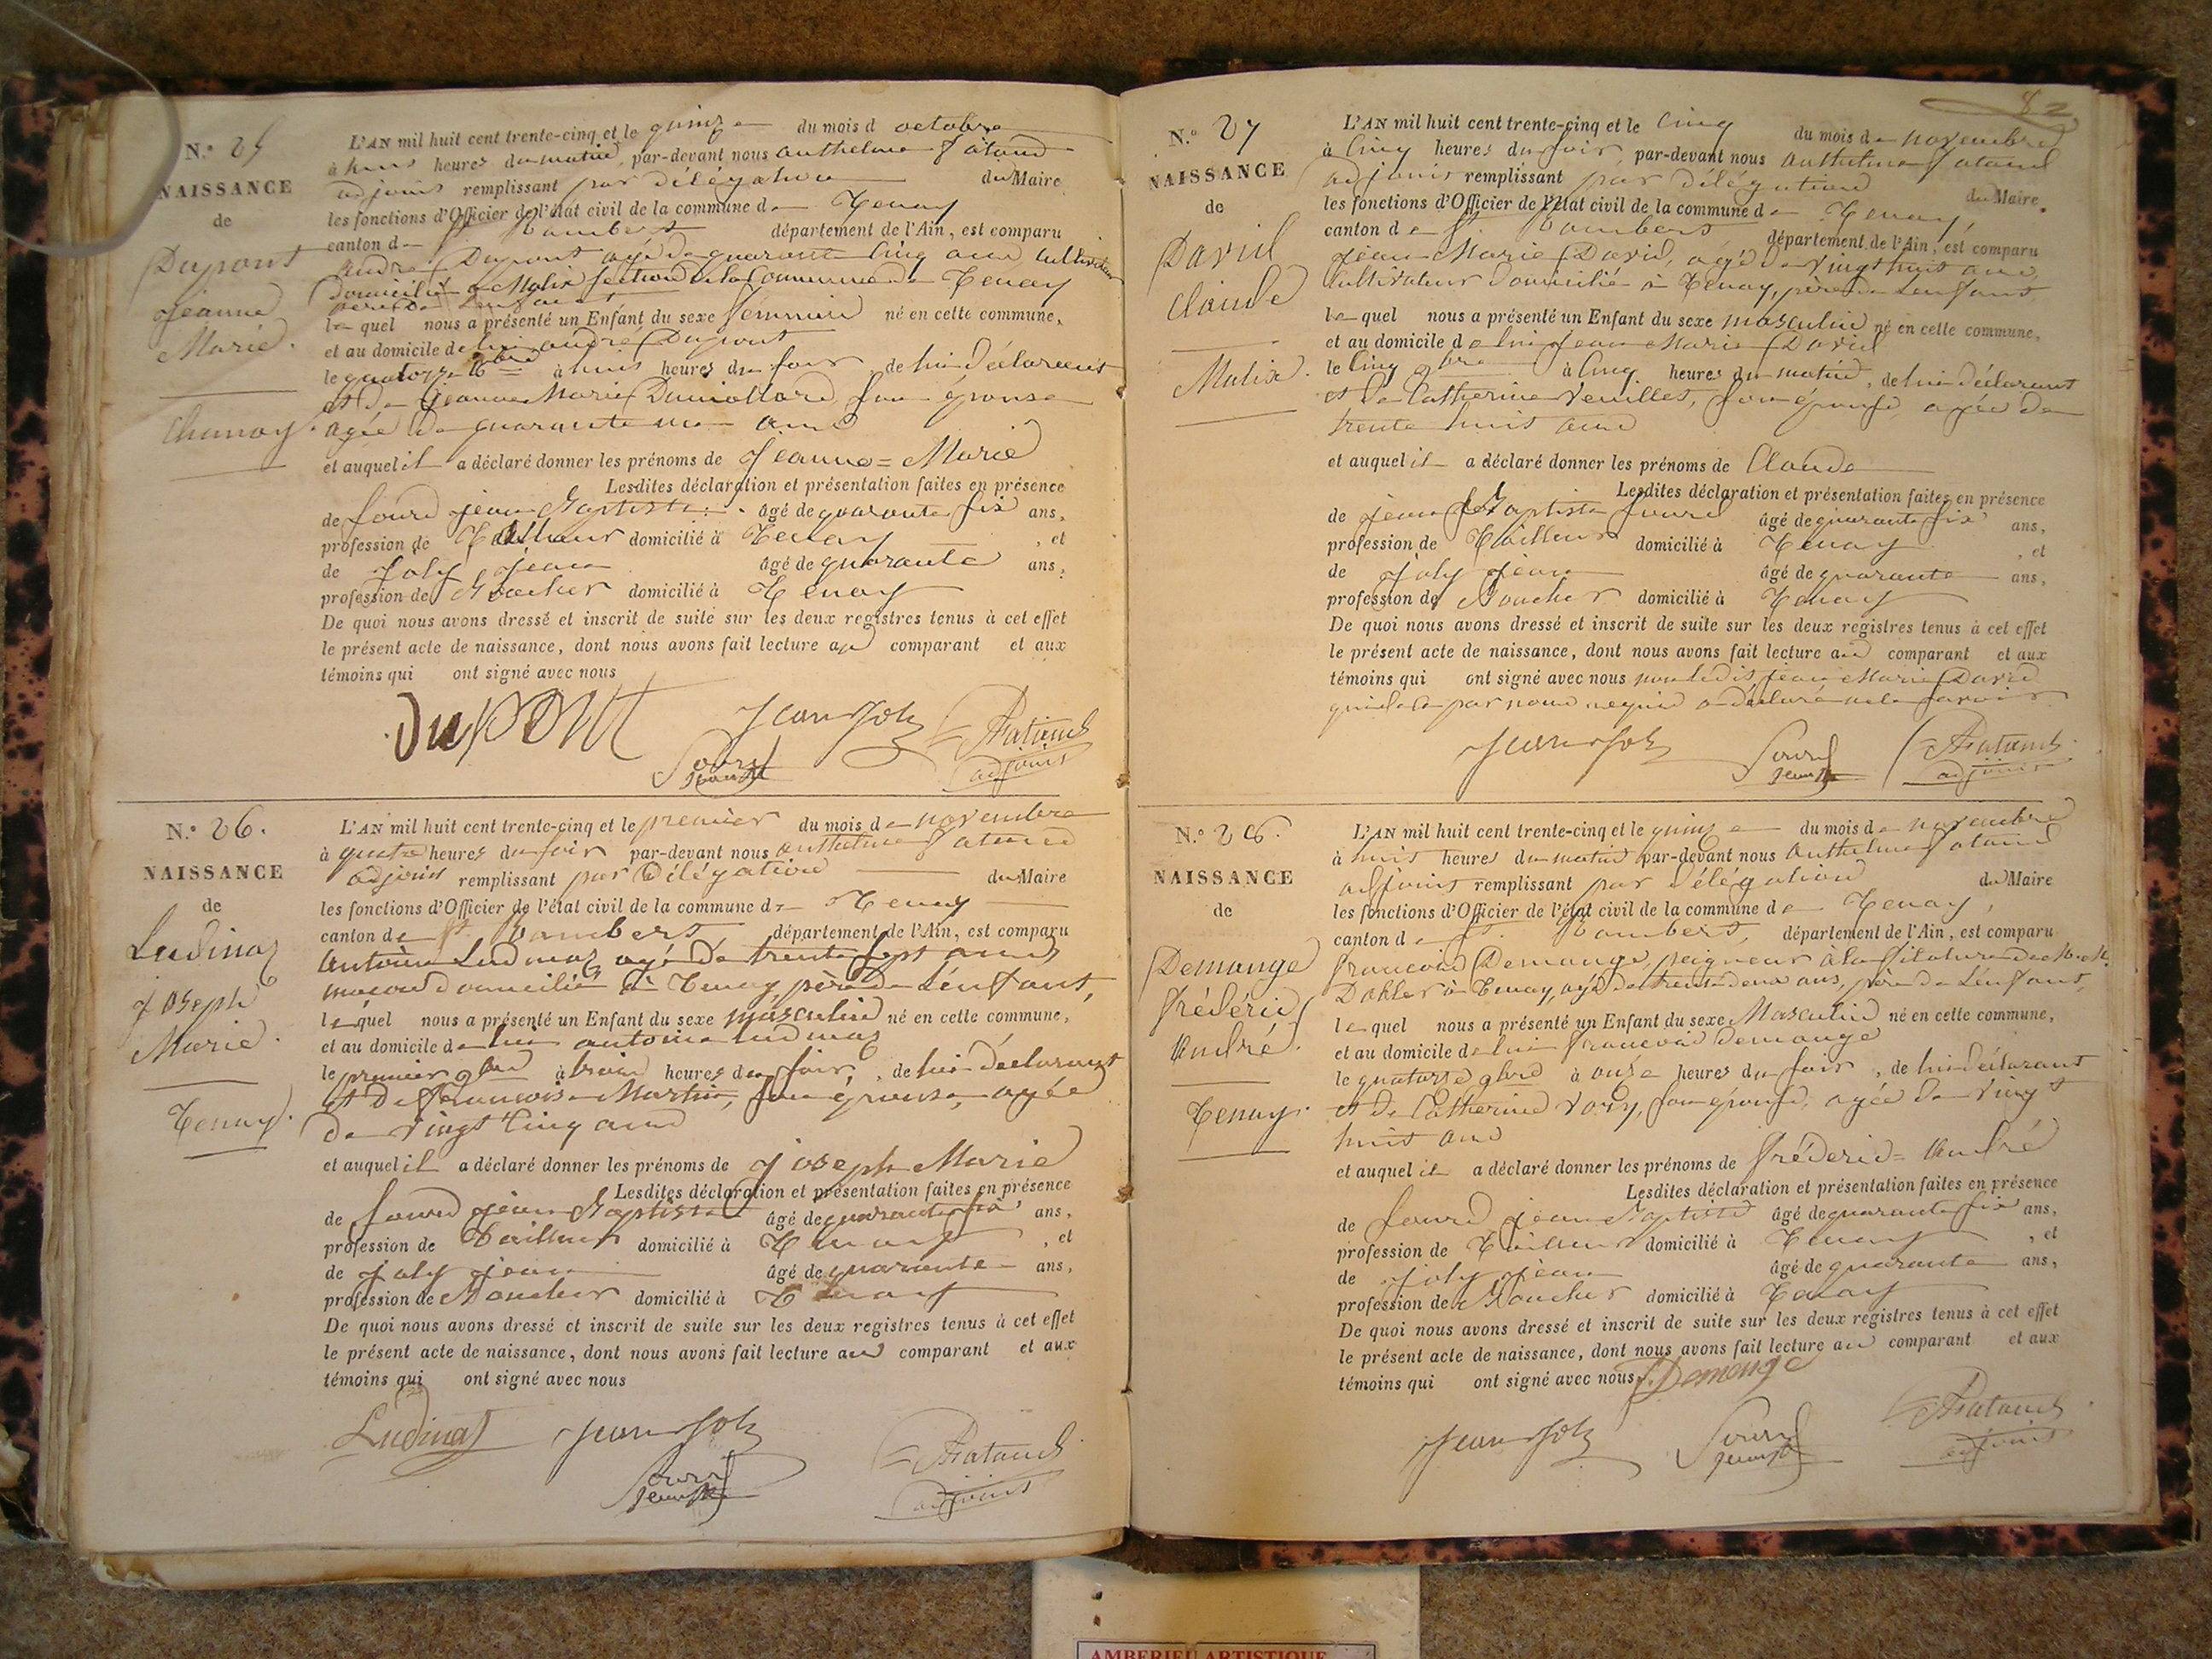 N.° 25
NAISSANCE
de
Dupont
Jeanne
Marie.
Chanay.
L'AN mil huit cent trente-cinq et le quinze du mois d octobre
à huit heures du matin, par-devant nous anthelme
adjoint remplissant par délégation du Maire
les fonctions d'Officier de l'état civil de la commune de Tenay
canton de St Rambert département de l'Ain, est comparu
andré Dupont agé de quarante cinq ans, cultivateur
domicilié a Malix section de la Commune de Tenay
père de l'enfant
lequel nous a présenté un Enfant du sexe féminin né en cette commune,
et au domicile de lui andré Dupont
le quatorze 8bre à huit heures du soir de lui déclarant
et de Jeanne Marie son épouse
agée de quarante un ans
et auquel il a déclaré donner les prénoms de Jeanne=Marie
Lesdites déclaration et présentation faites en présence
de jean Baptiste âgé de quarante six ans,
profession de Tailleur domicilié à Tenay, et
de Joly jean âgé de quarante ans,
profession de Boucher domicilié à Tenay
De quoi nous avons dressé et inscrit de suite sur les deux registres tenus à cet effet
le présent acte de naissance, dont nous avons fait lecture au comparant et aux
témoins qui ont signé avec nous
DuPONt
Jean Joly
adjoint
N.° 26.
NAISSANCE
de
Ludinaz
Joseph
Marie.
Tenay.
L'AN mil huit cent trente-cinq et le premier du mois de novembre
à quatre heures du soir par-devant nous anthelme
adjoint remplissant par délégation du Maire
les fonctions d'Officier de l'état civil de la commune de Tenay
canton de St Rambert département de l'Ain, est comparu
antoine Ludinaz agé de trente sept ans
maçon domicilié à Tenay, père de l'enfant,
lequel nous a présenté un Enfant du sexe masculin né en cette commune,
et au domicile de lui antoine Ludinaz
le premier 9bre à trois heures du soir, de lui déclarant
et de françoise Martin, son épouse, agée
de vingt cinq ans
et auquel il a déclaré donner les prénoms de Joseph Marie
Lesdites déclaration et présentation faites en présence
de jean Baptiste âgé de quarante six ans,
profession de Tailleur domicilié à Tenay, et
de Joly jean âgé de quarante ans,
profession de Boucher domicilié à Tenay
De quoi nous avons dressé et inscrit de suite sur les deux registres tenus à cet effet
le présent acte de naissance, dont nous avons fait lecture au comparant et aux
témoins qui ont signé avec nous
Ludinaz
Jean Joly
adjoint
82
N.° 27
NAISSANCE
de
David
Claude
Malix.
L'AN mil huit cent trente-cinq et le cinq du mois de novembre
à cinq heures du soir, par-devant nous anthelme
adjoint remplissant par délégation du Maire
les fonctions d'Officier de l'état civil de la commune de Tenay,
canton de St Rambert département de l'Ain, est comparu
jean Marie David, agé de vingt huit ans
cultivateur domicilié à Tenay, père de l'enfant
lequel nous a présenté un Enfant du sexe masculin né en cette commune,
et au domicile de lui jean Marie David
le cinq 9bre à cinq heures du matin, de lui déclarant
et de Catherine son épouse, agée de
trente huit ans
et auquel il a déclaré donner les prénoms de Claude
Lesdites déclaration et présentation faites en présence
de jean Baptiste âgé de quarante six ans,
profession de Tailleur domicilié à Tenay, et
de Joly jean âgé de quarante ans,
profession de Boucher domicilié à Tenay
De quoi nous avons dressé et inscrit de suite sur les deux registres tenus à cet effet
le présent acte de naissance, dont nous avons fait lecture au comparant et aux
témoins qui ont signé avec nous non ledit jean Marie David
qui de ce par nous requis a déclaré ne le savoir
Jean Joly
adjoint
N.° 28.
NAISSANCE
de
Demange
frédéric
André.
Tenay.
L'AN mil huit cent trente-cinq et le quinze du mois de novembre
à huit heures du matin par-devant nous anthelme
adjoint remplissant par délégation du Maire
les fonctions d'Officier de l'état civil de la commune de Tenay,
canton de St Rambert, département de l'Ain, est comparu
françois Demange, peigneur à la filature de
à Tenay, agé de trente deux ans, père de l'enfant,
lequel nous a présenté un Enfant du sexe Masculin né en cette commune,
et au domicile de lui françois Demange
le quatorze 9bre à onze heures du soir, de lui déclarant
et de Catherine son épouse, agée de vingt
huit ans
et auquel il a déclaré donner les prénoms de frédéric=André
Lesdites déclaration et présentation faites en présence
de jean Baptiste âgé de quarante six ans,
profession de Tailleur domicilié à Tenay, et
de Joly jean âgé de quarante ans,
profession de Boucher domicilié à Tenay
De quoi nous avons dressé et inscrit de suite sur les deux registres tenus à cet effet
le présent acte de naissance, dont nous avons fait lecture au comparant et aux
témoins qui ont signé avec nous. Demange
Jean Joly
adjoint
AMBERIEU ARTISTIQUE